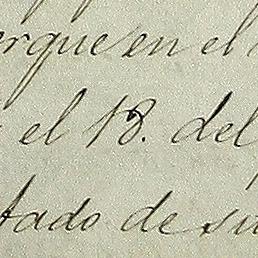 erque en el
el 18. del
tado de su